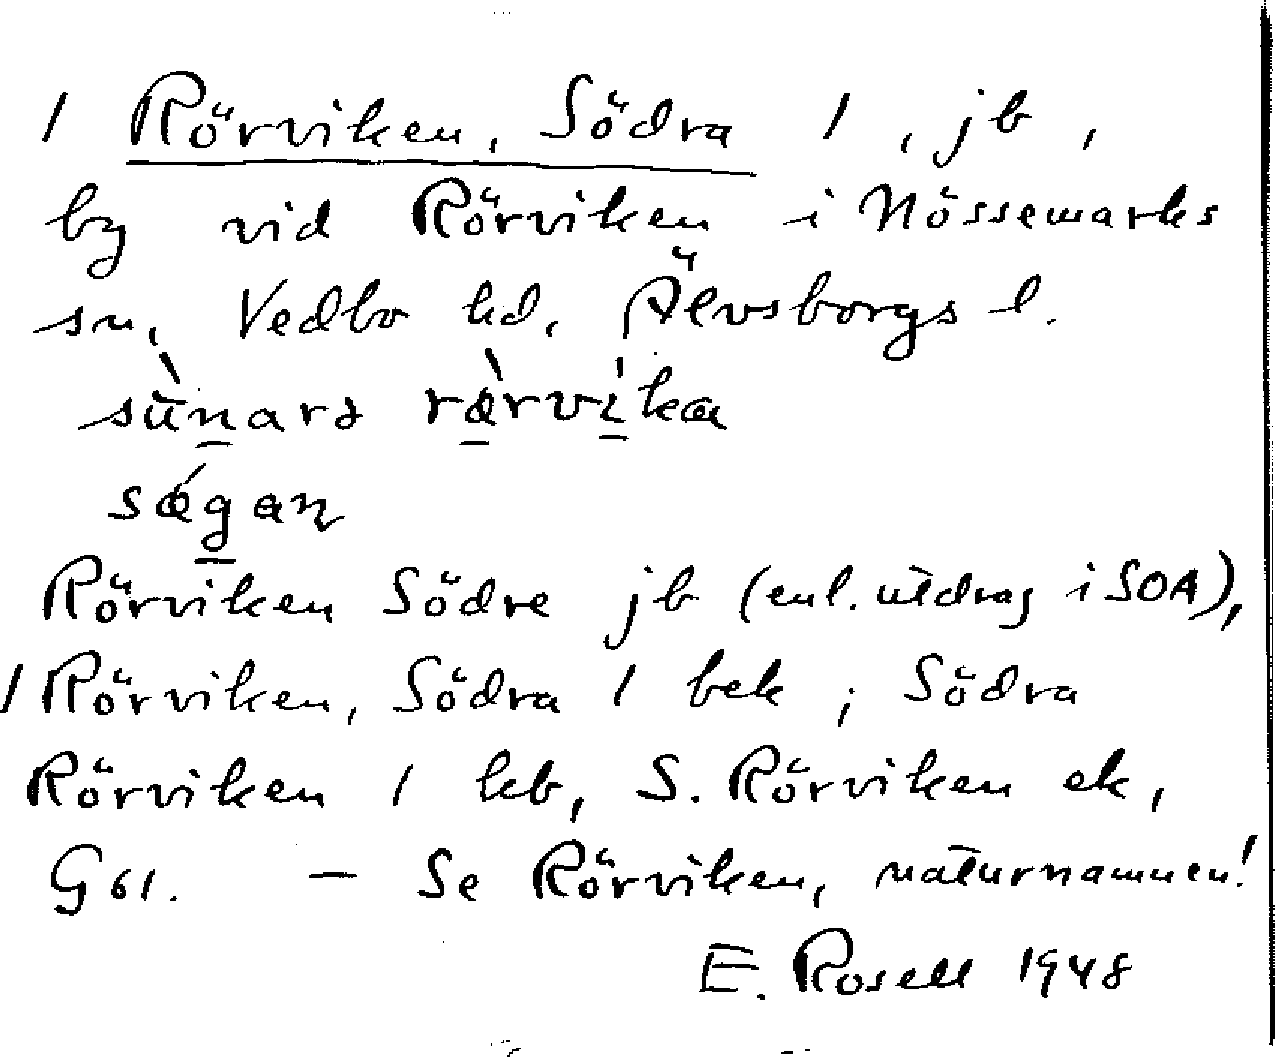 1 Rörviken, Södra 1, jb,
by vid Rörviken i Nössemarks
sn, Vedbo hd, Älvsborgs l.
sǜn̠arə ræ̠̀rvi̠̍ka
sǽg̠an
Rörviken Södre jb (enl. utdrag i SOA),
1 Rörviken, Södra 1 bek; Södra
Rörviken 1 kb, S. Rörviken ek,
G 61. — Se Rörviken, naturnamnen!
E. Rosell 1948